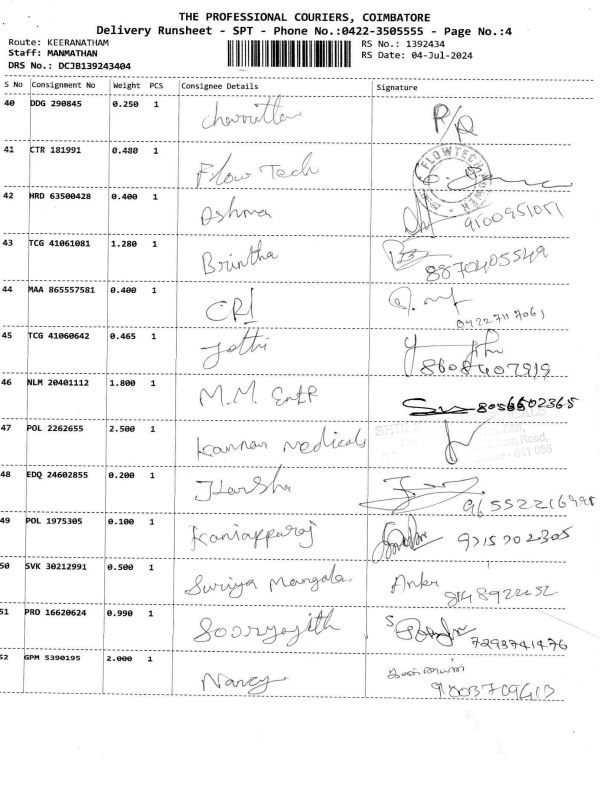 THE PROFESSIONAL COURIERS, COIMBATORE
Delivery Runsheet - SPT - Phone No.:0422-3505555 - Page No.:4
Route: KEERANATHAM RS No.: 1392434
Staff: MANMATHAN RS Date: 04-Jul-2024
DRS No.: DCJB139243404
S No Consignment No Weight PCS Consignee Details Signature
40 DDG 290845 0.250 1 P/R
41 CTR 181991 0.480 1 Flow Tech FLOWTECH
42 HRD 63500428 0.400 1 Ashma
43 TCG 41061081 1.280 1 Brintha 8870405549
44 MAA 865557581 0.400 1 CRI
45 TCG 41060642 0.465 1 Jothi 8608407919
46 NLM 20401112 1.800 1 M.M. EntP
47 POL 2262655 2.500 1 Kannan medicals Road,
48 EDQ 24602855 0.200 1 Harsha
49 POL 1975305 0.100 1 Kaniapparaj 9715702305
50 SVK 30212991 0.500 1 Suriya Mangala
51 PRO 16620624 0.990 1 Sooryajith 7293741476
52 GPM 5390195 2.000 1 Nancy